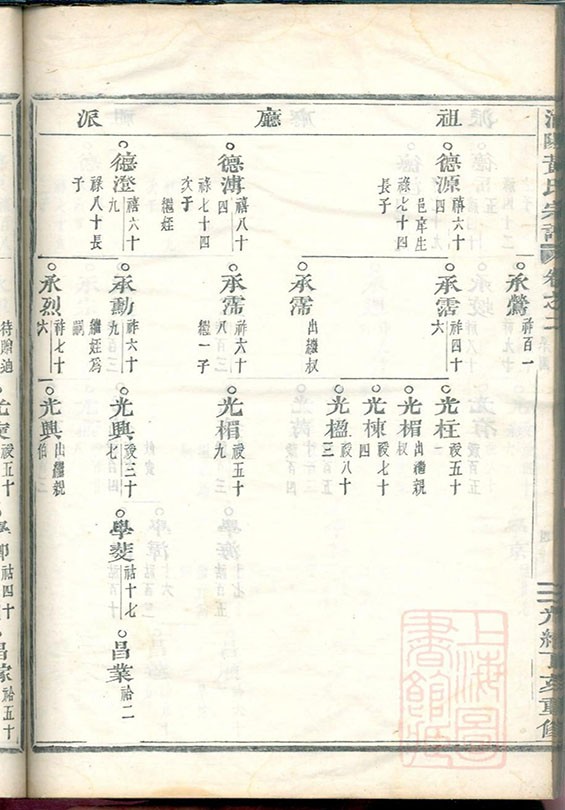 黃氏宗譜 卷之二
光緒丁亥重修
祖 廳 派
承鶯 祥百一
德源 禧六十四 邑庠生
祿七十四長子
承霑 祥四十六
光柱 祾五十一
光楣 出繼親叔
光棟 祾七十四
光楹 祾八十三
承霈 出繼叔
德溥 禧八十四
祿七十四次子
繼姪
承霈 祥六十八
繼一子
光楣 祾五十九
德澄 禧六十九
祿八十長子
承勳 祚六十九
繼姪為嗣
光興 祾三十七
學斐 祜十七
昌業 祫二
承烈 祚七十六
光興 出繼親伯
待贈迪
祾五十
祜四十
祫五十
上海圖書館藏